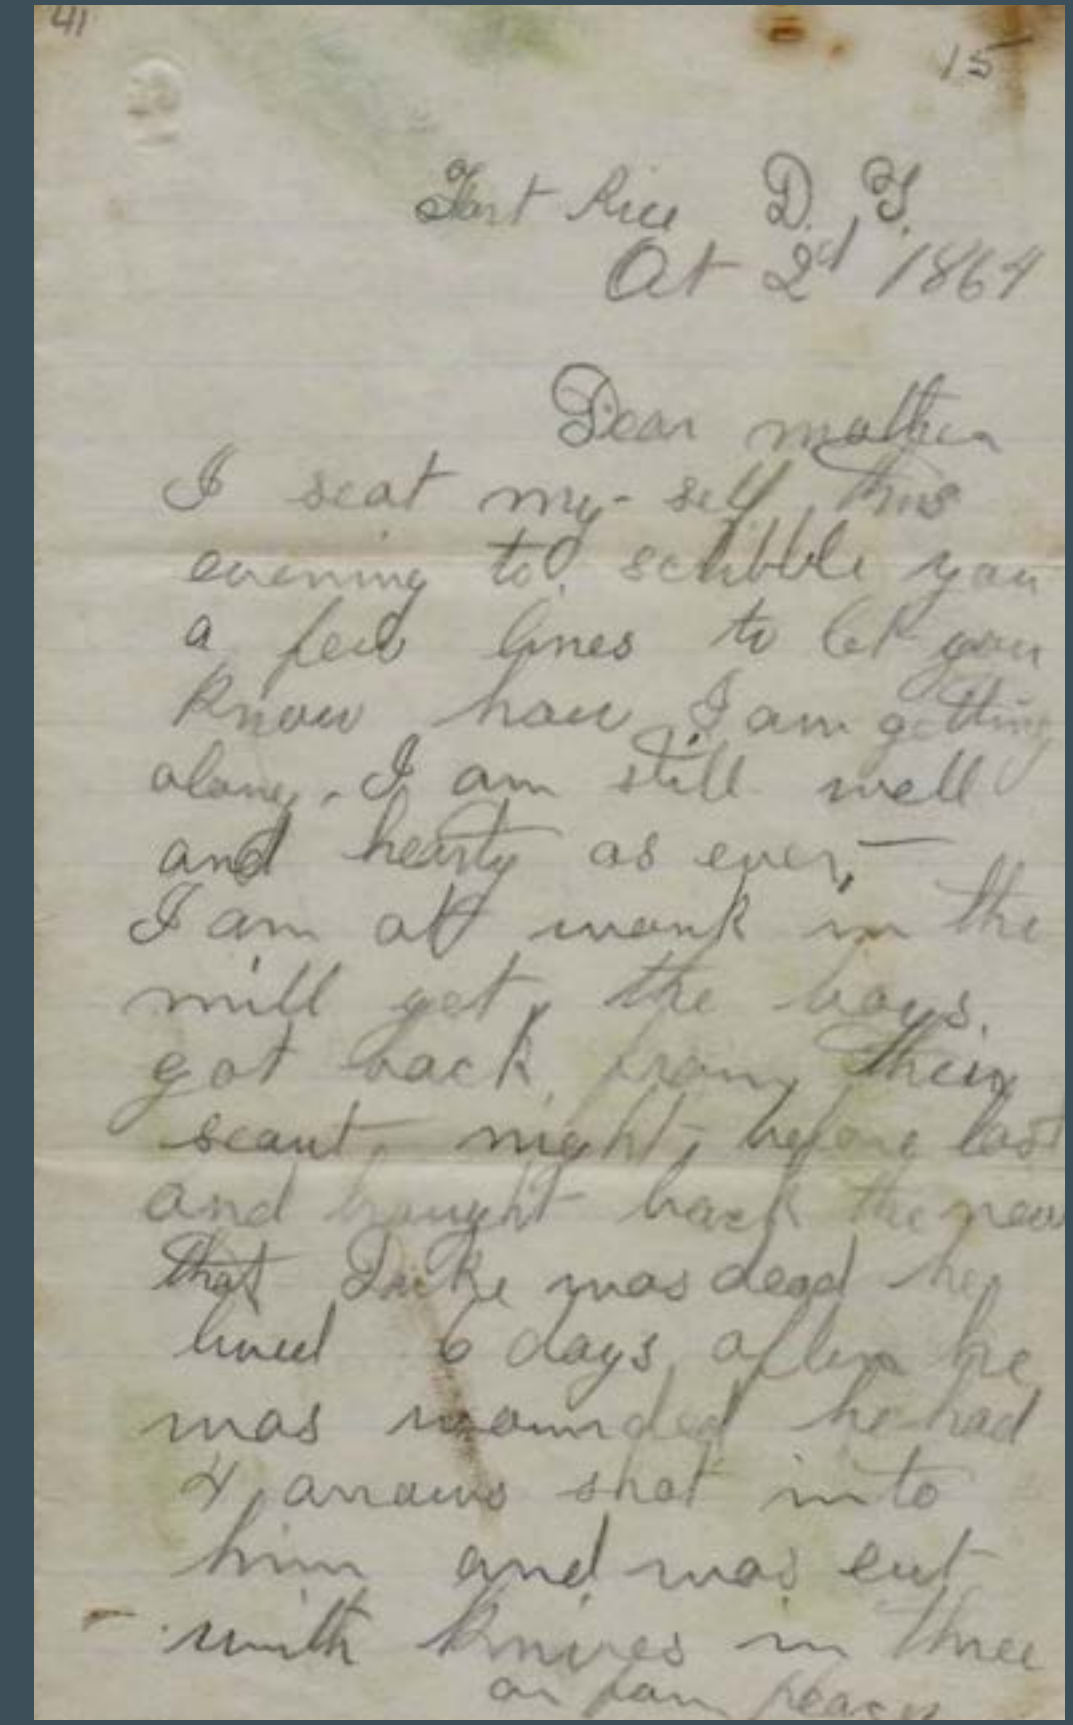 41
15
Fort Rice D. T.
Oct 2d 1864
Dear mother
I seat my-self this
evening to scribble you
a few lines to let you
know how I am getting
along. I am still well
and hearty as ever,
I am at work in the
mill yet, the boys.
got back from their
scout night before last
and braught back the news
that Duke was dead he
lived 6 days after he
was wounded he had
4 arrows shot into
him and was cut
with knives in three
or four